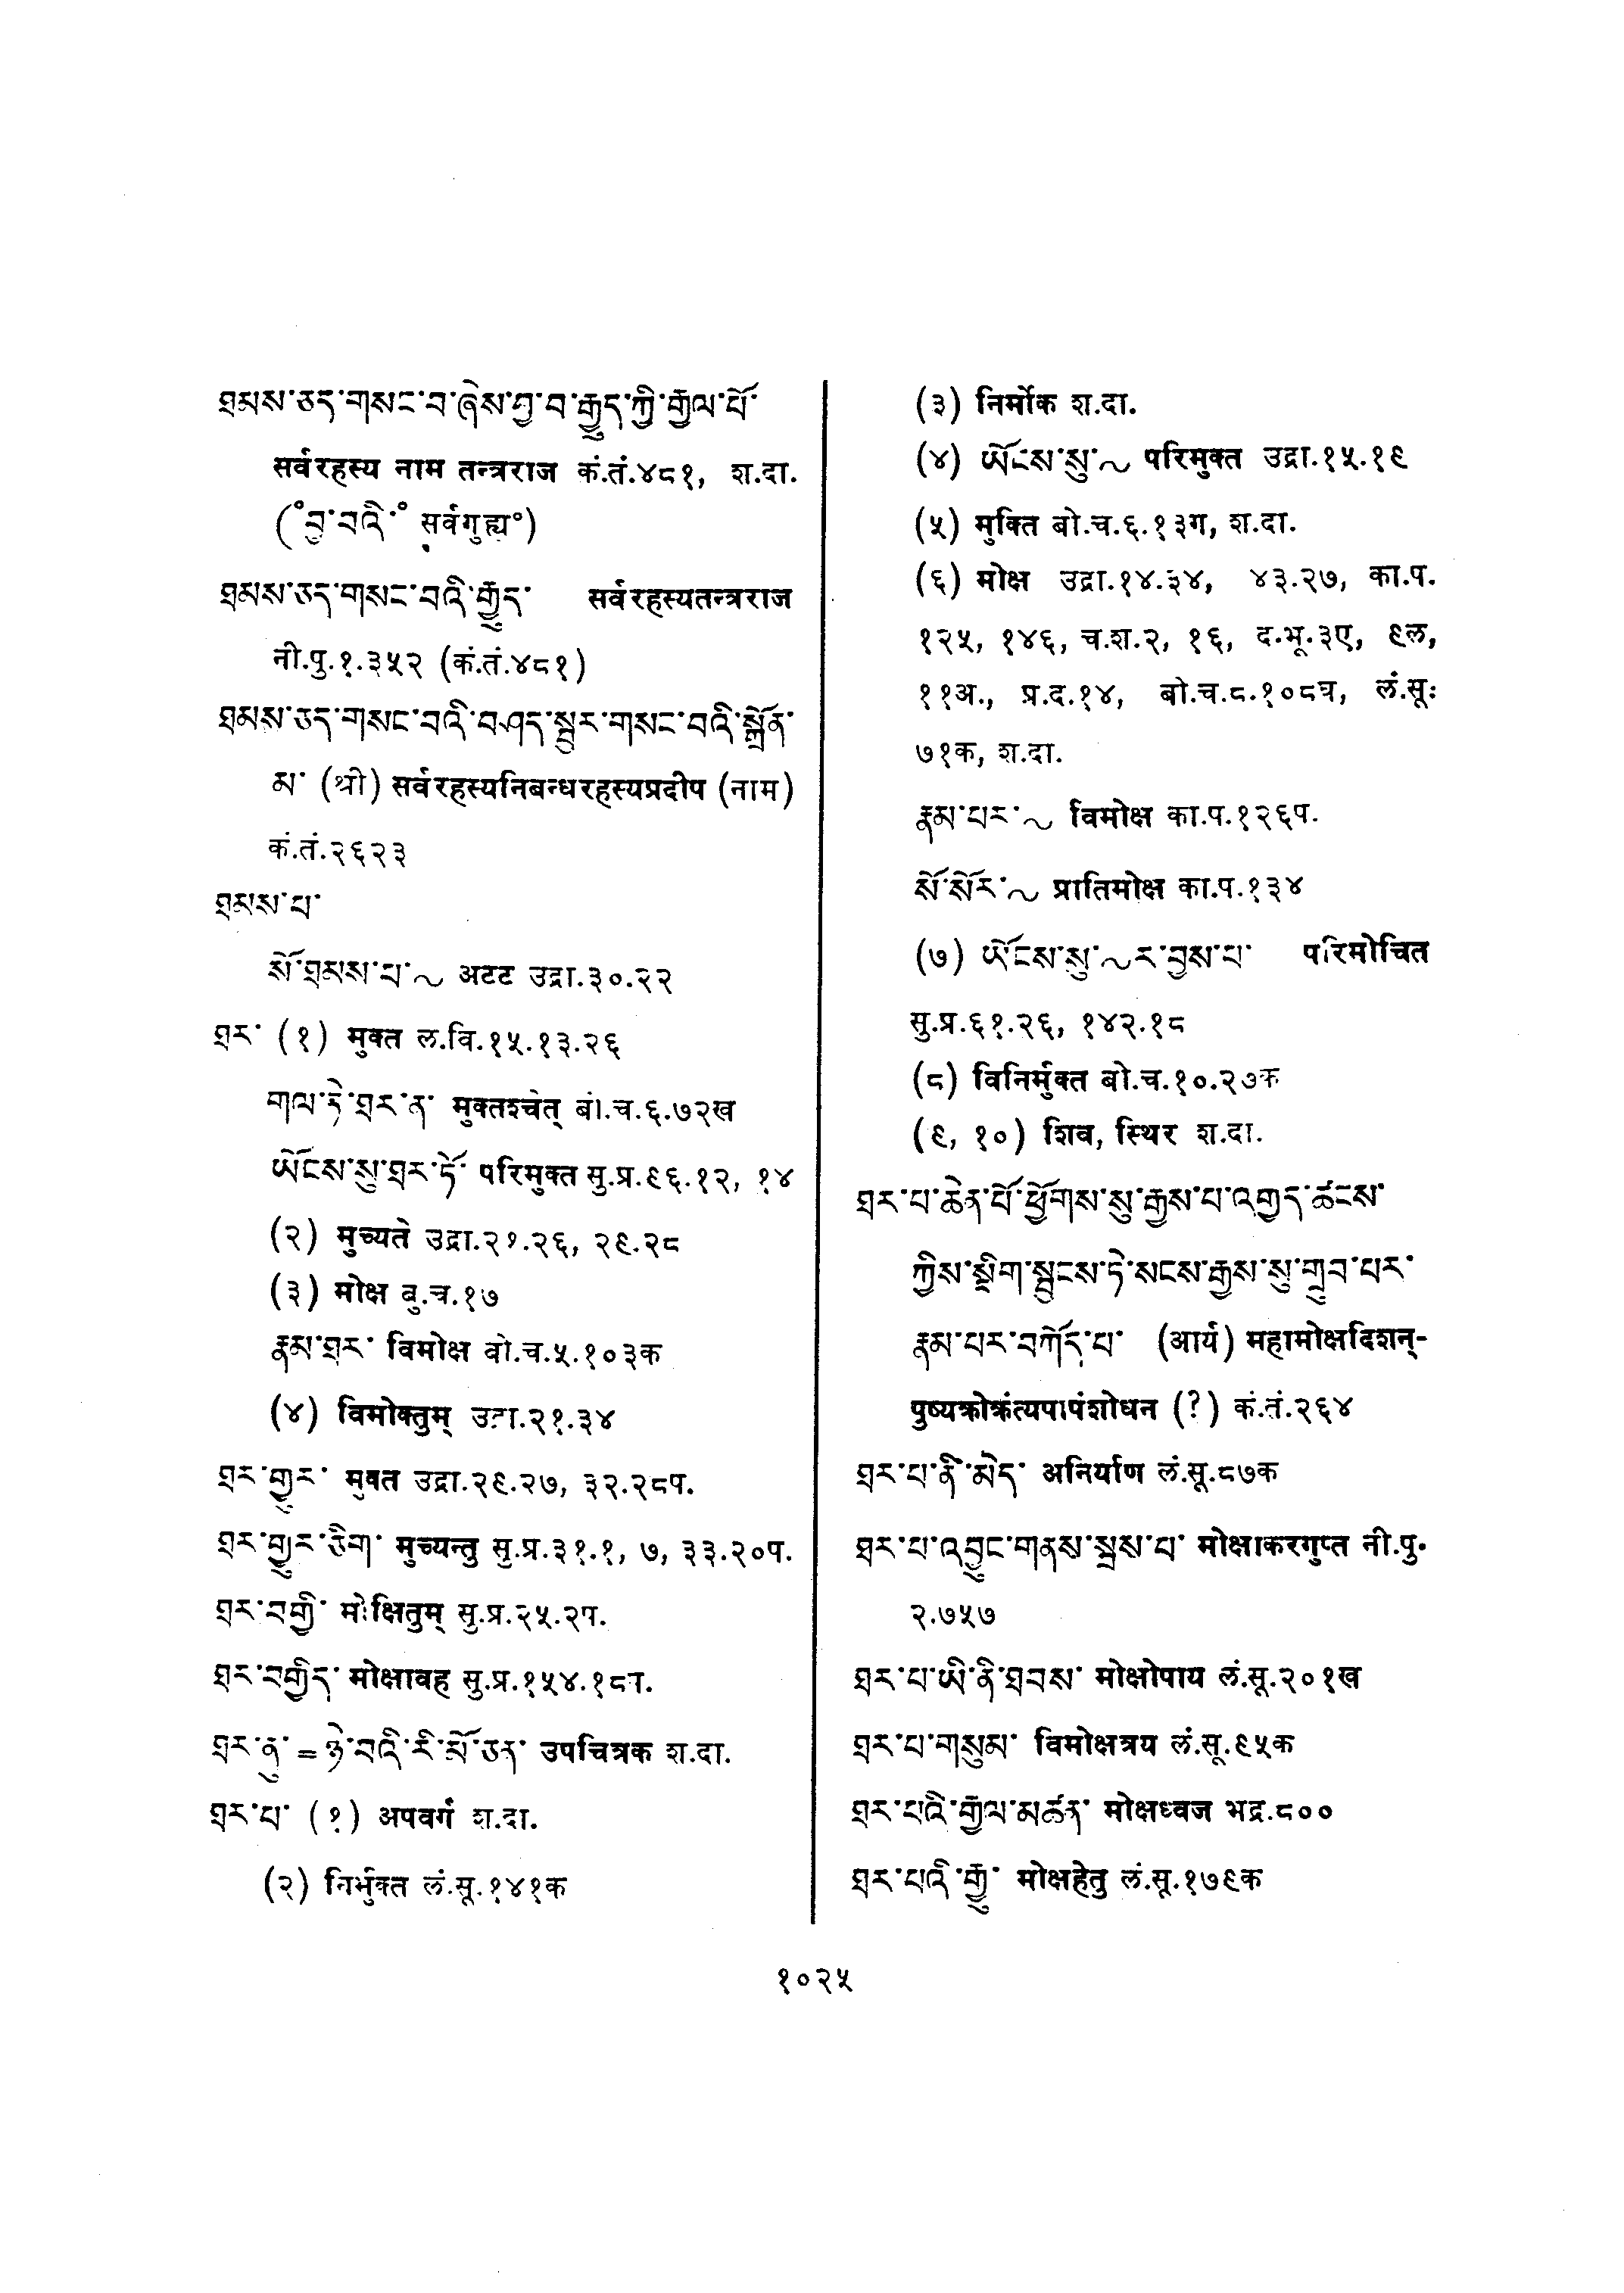 ཐམས་ཅད་གསང་བ་ཞེས་བྱ་བ་རྒྱུད་ཀྱི་རྒྱལ་པོ་
सर्वरहस्य नाम तन्त्रराज कं.तं.४८१, श.दा.
(°བྱ་བའི་° सर्वगुह्य°)
ཐམས་ཅད་གསང་བའི་རྒྱུད་ सर्वरहस्यतन्त्रराज
नी.पु.१.३५२ (कं.तं.४८१)
ཐམས་ཅད་གསང་བའི་བཤད་སྦྱར་གསང་བའི་སྒྲོན་
མ་ (श्री) सर्वरहस्यनिबन्धरहस्यप्रदीप (नाम)
कं.तं.२६२३
ཐམས་པ་
སོ་ཐམས་པ་~ अटट उद्रा.३०.२२
ཐར་ (१) मुक्त ल.वि.१५.१३.२६
གལ་ཏེ་ཐར་ན་ मुक्तश्चेत् बो.च.६.७२ख
ཡོངས་སུ་ཐར་ཏོ་ परिमुक्त सु.प्र.९६.१२, १४
(२) मुच्यते उद्रा.२१.२६, २९.२८
(३) मोक्ष बु.च.१७
རྣམ་ཐར་ विमोक्ष बो.च.५.१०३क
(४) विमोक्तुम् उद्रा.२१.३४
ཐར་གྱུར་ मुक्त उद्रा.२९.२७, ३२.२८प.
ཐར་གྱུར་ཅིག་ मुच्यन्तु सु.प्र.३१.१, ७, ३३.२०प.
ཐར་བགྱི་ मोक्षितुम् सु.प्र.२५.२प.
ཐར་བགྱིད་ मोक्षावह सु.प्र.१५४.१८प.
ཐར་ནུ་=ཉེ་བའི་རི་མོ་ཅན་ उपचित्रक श.दा.
ཐར་པ་ (१) अपवर्ग श.दा.
(२) निर्मुक्त लं.सू.१४१क
(३) निर्मोक श.दा.
(४) ཡོངས་སུ་~ परिमुक्त उद्रा.१५.१९
(५) मुक्ति बो.च.६.१३ग, श.दा.
(६) मोक्ष उद्रा.१४.३४, ४३.२७, का.प.
१२५, १४६, च.श.२, १६, द.भू.३ए, ९ल,
११अ., प्र.द.१४, बो.च.८.१०८घ, लं.सू.
७१क, श.दा.
རྣམ་པར་~ विमोक्ष का.प.१२६प.
སོ་སོར་~ प्रातिमोक्ष का.प.१३४
(७) ཡོངས་སུ་~ར་བྱས་པ་ परिमोचित
सु.प्र.६१.२६, १४२.१८
(८) विनिर्मुक्त बो.च.१०.२७क
(९, १०) शिव, स्थिर श.दा.
ཐར་པ་ཆེན་པོ་ཕྱོགས་སུ་རྒྱས་པ་འགྱད་ཚངས་
ཀྱིས་སྡིག་སྦྱངས་ཏེ་སངས་རྒྱས་སུ་གྲུབ་པར་
རྣམ་པར་བཀོད་པ་ (आर्य) महामोक्षदिशन्-
पुष्यक्रोक्रंत्यपापंशोधन (?) कं.तं.२६४
ཐར་པ་ནི་མེད་ अनिर्याण लं.सू.८७क
ཐར་པ་འབྱུང་གནས་སྦས་པ་ मोक्षाकरगुप्त नी.पु.
२.७५७
ཐར་པ་ཡི་ནི་ཐབས་ मोक्षोपाय लं.सू.२०१ख
ཐར་པ་གསུམ་ विमोक्षत्रय लं.सू.९५क
ཐར་པའི་རྒྱལ་མཚན་ मोक्षध्वज भद्र.८००
ཐར་པའི་རྒྱུ་ मोक्षहेतु लं.सू.१७९क
१०२५